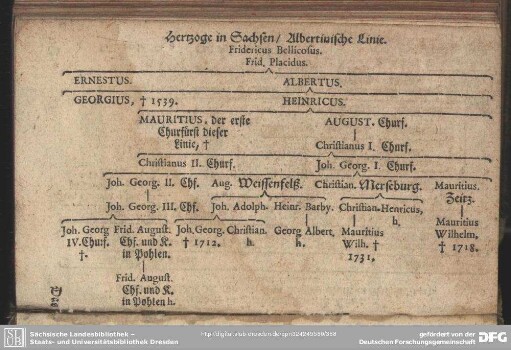 Hertzoge in Sachsen/ Albertinische Linie.
Fridericus Bellicosus.
Frid. Placidus.
ERNESTUS. ALBERTUS.
GEORGIUS, † 1539. HEINRICUS.
MAURITIUS, der erste AUGUST. Churf.
Churfürst dieser
Linie, † Christianus I. Churf.
Christianus II. Churf. Joh. Georg. I. Churf.
Joh. Georg. II. Chf. Aug. Weissenfelß. Christian. Merseburg. Mauritius.
Zeitz.
Joh. Georg. III. Chf. Joh. Adolph. Heinr. Barby. Christian. Henricus,
h. Mauritius
Joh. Georg Frid. August. Joh. Georg. Christian. Georg Albert. Mauritius Wilhelm.
IV. Churf. Chf. und K. † 1712. h. h. Wilh. † † 1718.
†. in Pohlen. 1731.
Frid. August.
Chf. und K.
in Pohlen h.
Sächsische Landesbibliothek –
Staats- und Universitätsbibliothek Dresden
gefördert von der
Deutschen Forschungsgemeinschaft
DFG